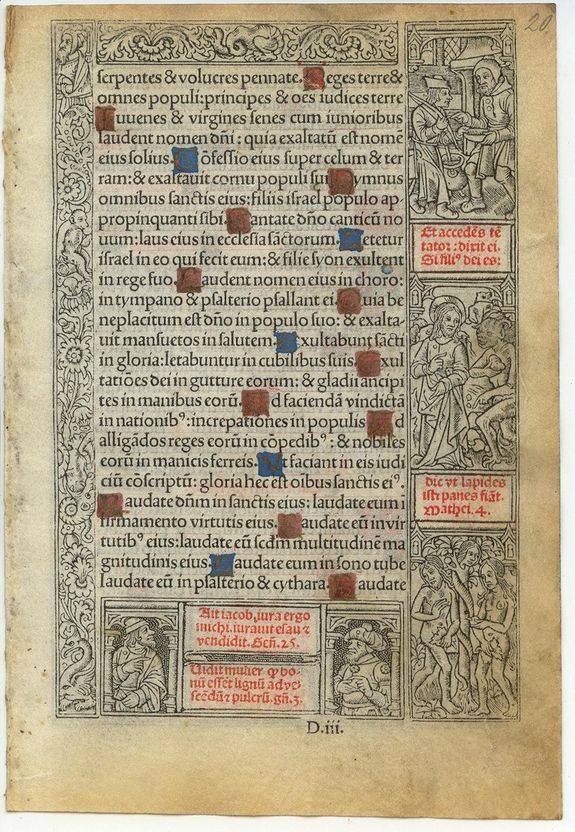 20
serpentes & volucres pennate. Reges terre &
omnes populi: principes & oẽs iudices terre
Iuuenes & virgines senes cum iunioribus
laudent nomen dñi: quia exaltatũ est nomẽ
eius solius. Cõfessio eius super celum & ter
ram: & exaltauit cornu populi sui. Hymnus
omnibus sanctis eius: filiis israel populo ap
propinquanti sibi. Cantate dño canticũ no
uum: laus eius in ecclesia sãctorum. Letetur
israel in eo qui fecit eum: & filie syon exultent
in rege suo. Laudent nomen eius in choro:
in tympano & psalterio psallant ei. Quia be
neplacitum est dño in populo suo: & exalta-
uit mansuetos in salutem. Exultabunt sãcti
in gloria: letabuntur in cubilibus suis. Exul
tatiões dei in gutture eorum: & gladii ancipi
tes in manibus eorũ. Ad faciendã vindictã
in nationibꝰ: increpationes in populis. Ad
alligãdos reges eorũ in cõpedibꝰ: & nobiles
eorũ in manicis ferreis. Vt faciant in eis iudi
ciũ cõscriptũ: gloria hec est oĩbus sanctis eiꝰ.
Laudate dñm in sanctis eius: laudate eum i
firmamento virtutis eius. Laudate eũ in vir
tutibꝰ eius: laudate eũ scdm multitudinẽ ma
gnitudinis eius. Laudate eum in sono tube
laudate eũ in psalterio & cythara. Laudate
Et accedẽs tẽ
tator: dixit ei.
Si filiꝰ dei es:
dic vt lapides
isti panes fiãt.
Mathei. 4.
Ait iacob, iura ergo
michi. iurauit esau ⁊
vendidit. Geñ. 25.
Vidit mulier ꝙ bo-
nũ esset lignũ ad ve-
scẽdũ ⁊ pulcrũ. gñ. 3.
D.iii.